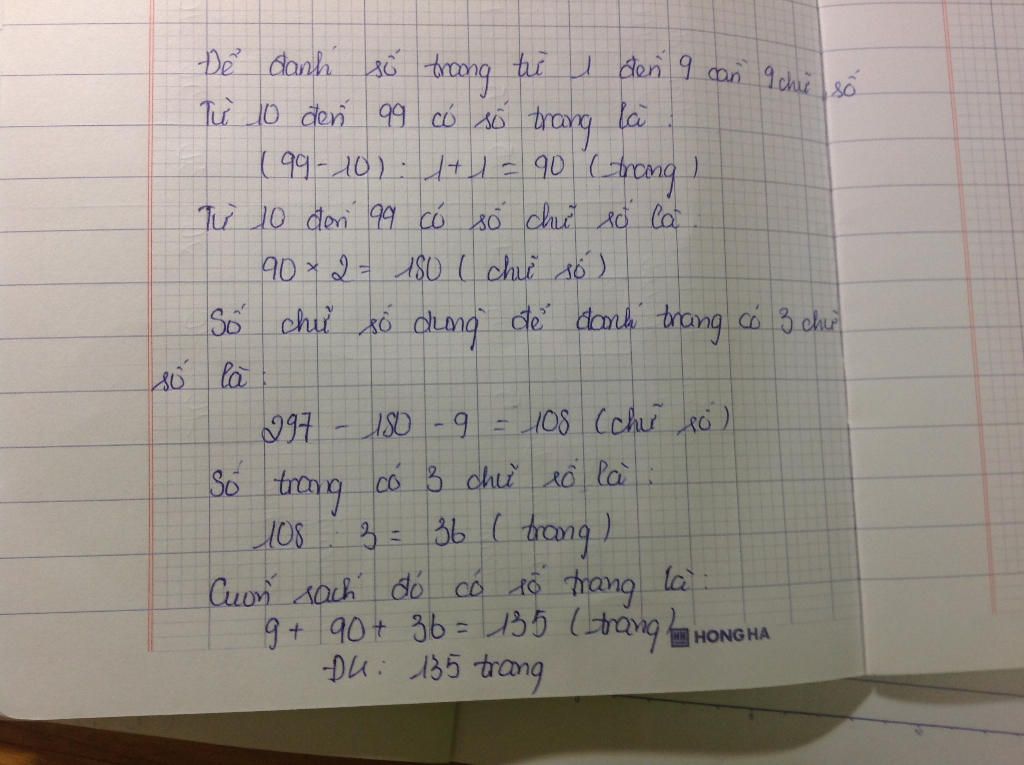 Để đánh số trang từ 1 đến 9 cần 9 chữ số
Từ 10 đến 99 có số trang là :
(99 - 10) : 1 + 1 = 90 (trang)
Từ 10 đến 99 có số chữ số là :
90 × 2 = 180 ( chữ số )
Số chữ số dùng để đánh trang có 3 chữ
số là :
297 - 180 - 9 = 108 (chữ số)
Số trang có 3 chữ số là :
108 : 3 = 36 ( trang )
Cuốn sách đó có số trang là :
9 + 90 + 36 = 135 ( trang )
HONG HA
ĐS : 135 trang